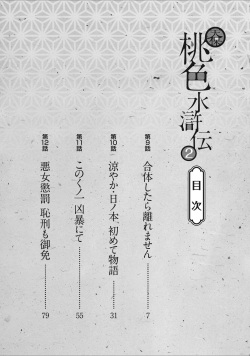 桃色水滸伝
2
目次
第9話
合体したら離れません
7
第10話
涼やか・日ノ本、初めて物語
31
第11話
このくノ一 凶暴にて
55
第12話
悪女懲罰 恥刑も御免
79